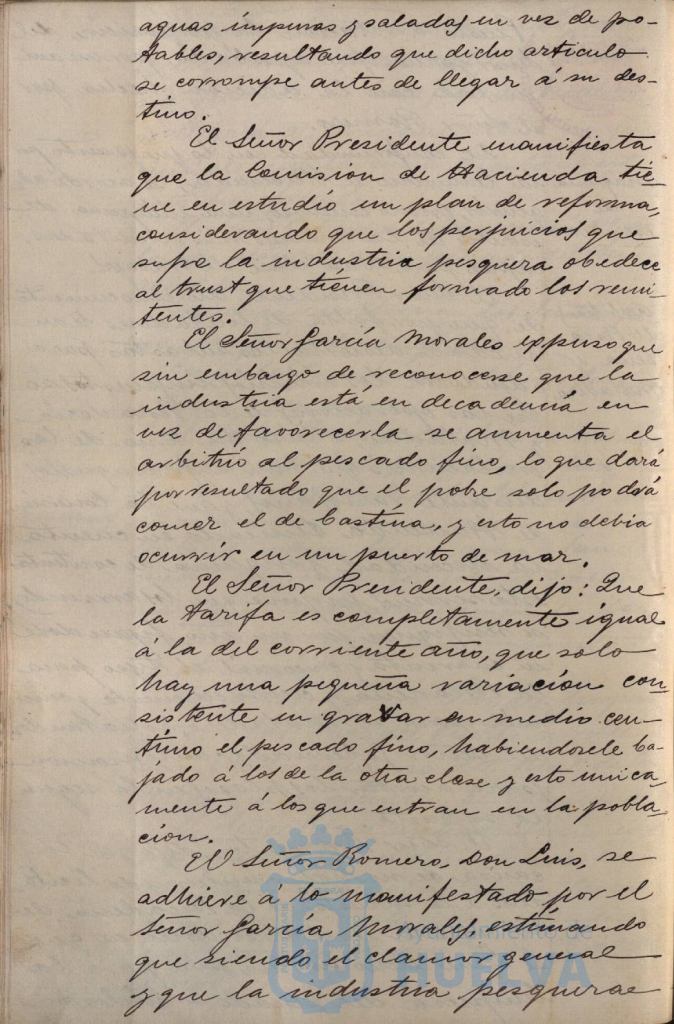 aguas impuras y saladas en vez de po-
tables, resultando que dicho articulo
se corrompe antes de llegar á su des-
tino.
El Señor Presidente manifiesta
que la Comisión de Hacienda tie-
ne en estudio un plan de reforma,
considerando que los perjuicios que
sufre la industria pesquera obedece
al trust que tienen formado los remi-
tentes.
El Señor García Morales expuso que
sin embargo de reconocerse que la
industria está en decadencia en
vez de favorecerla se aumenta el
arbitrio al pescado fino, lo que dará
por resultado que el pobre solo podrá
comer el de bastina, y esto no debia
ocurrir en un puerto de mar.
El Señor Presidente, dijo: Que
la tarifa es completamente igual
á la del corriente año, que solo
hay una pequeña variación con-
sistente en gravar en medio cen-
timo el pescado fino, habiendosele ba-
jado á los de la otra clase y esto unica-
mente á los que entran en la pobla-
ción.
El Señor Romero, Don Luis, se
adhiere á lo manifestado por el
Señor García Morales, estimando
que siendo el clamor general
y que la industria pesquera
Ayuntamiento de
HUELVA